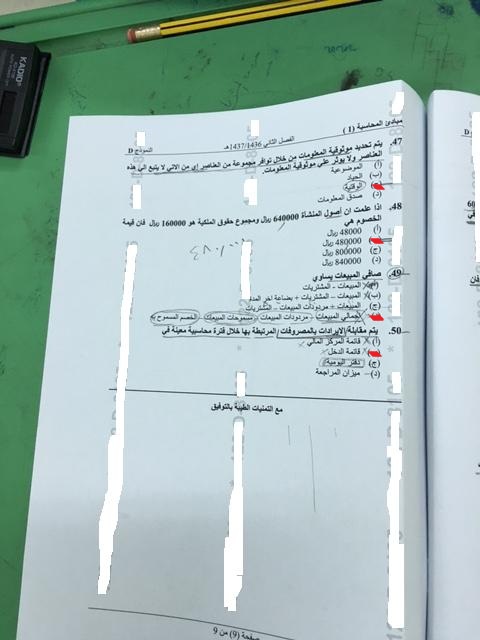 KADIO
مبادئ المحاسبة (1)
الفصل الثاني 1437/1436هـ
النموذج D
47. يتم تحديد موثوقية المعلومات من خلال توافر مجموعة من العناصر إي من الاتي لا يتبع الي هذه
العناصر ولا يوثر علي موثوقية المعلومات.
أ) الموضوعية
ب) الحياد
ج) الوقتية
د) صدق المعلومات
48. اذا علمت ان أصول المنشاة 640000 ريال ومجموع حقوق الملكية هو 160000 ريال فان قيمة
الخصوم هي
أ) 48000 ريال
480000 ريال
ج) 800000 ريال
د) 840000 ريال
٤٨٠٠٠٠
49. صافي المبيعات يساوي
أ) المبيعات - المشتريات
ب) المبيعات – المشتريات + بضاعة اخر المدة
ج) المبيعات + مردودات المبيعات – المشتريات
إجمالي المبيعات – مردودات المبيعات – مسموحات المبيعات – الخصم المسموح به
50. يتم مقابلة الإيرادات بالمصروفات المرتبطة بها خلال فترة محاسبية معينة في
أ) قائمة المركز المالي
قائمة الدخل
ج) دفتر اليومية
د) ميزان المراجعة
مع التمنيات الطيبة بالتوفيق
صفحة (9) من 9